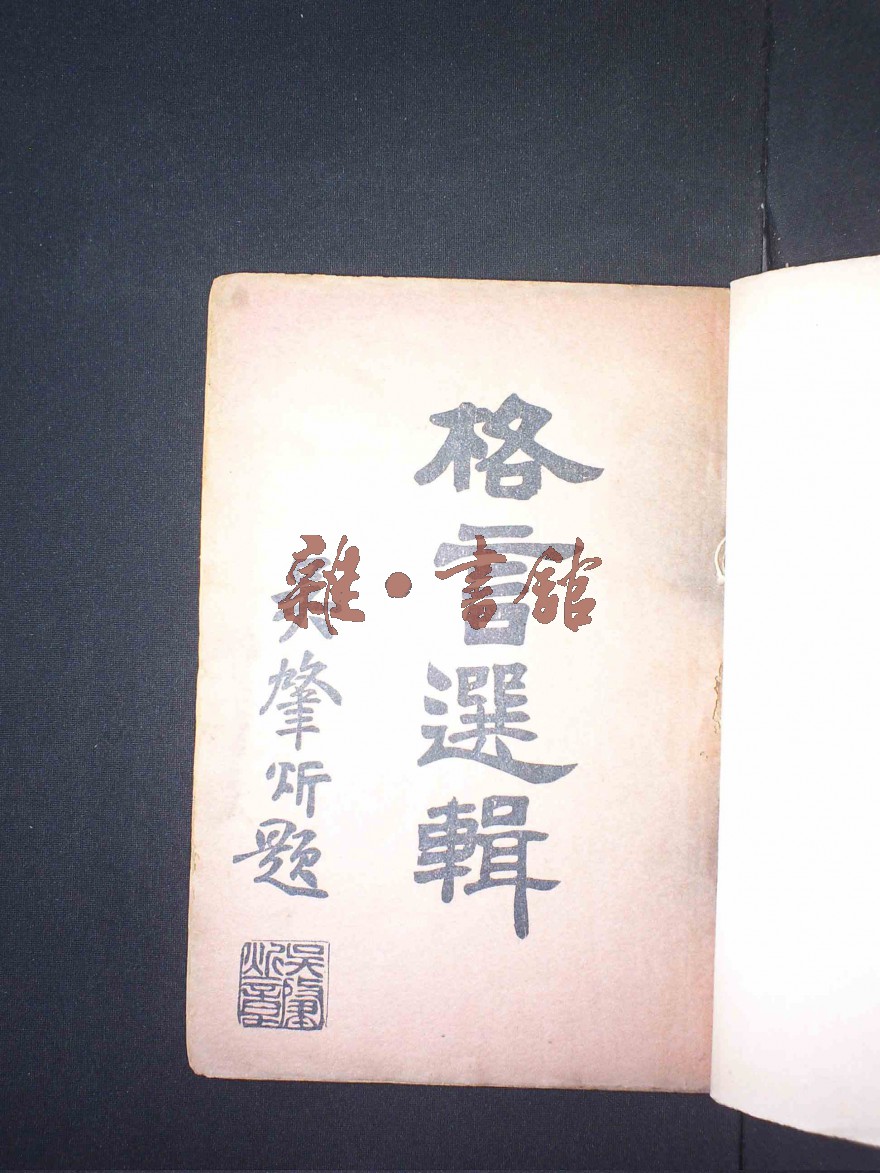 格言選輯
吳肇炘題
吳肇炘章
雜·書館